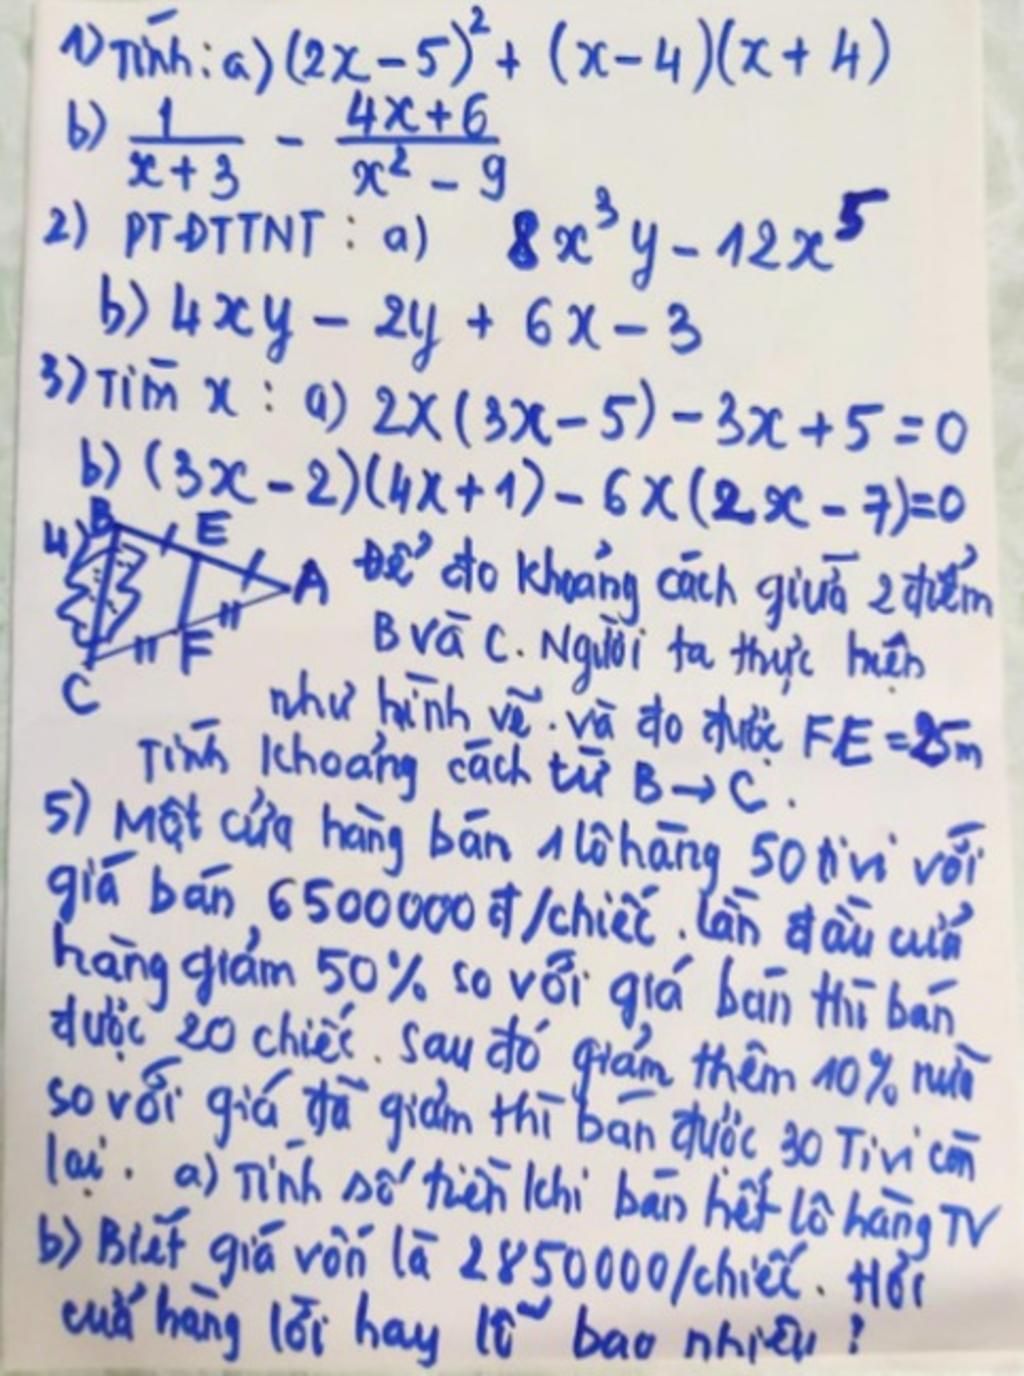 1) Tính: a) (2x-5)² + (x-4)(x+4)
b) 1/(x+3) - (4x+6)/(x²-9)
2) PTĐTTNT: a) 8x³y - 12x⁵
b) 4xy - 2y + 6x - 3
3) Tìm x: a) 2x(3x-5) - 3x+5=0
b) (3x-2)(4x+1) - 6x(2x-7)=0
4) B E A Để đo khoảng cách giữa 2 điểm
B và C. Người ta thực hiện
C F
như hình vẽ. và đo được FE = 25m
Tính khoảng cách từ B → C.
5) Một cửa hàng bán 1 lô hàng 50 tivi với
giá bán 6500000 đ/chiếc. lần đầu cửa
hàng giảm 50% so với giá bán thì bán
được 20 chiếc. Sau đó giảm thêm 10% nữa
so với giá đã giảm thì bán được 30 Tivi còn
lại. a) Tính số tiền khi bán hết lô hàng TV
b) Biết giá vốn là 2850000/chiếc. Hỏi
cửa hàng lời hay lỗ bao nhiêu?